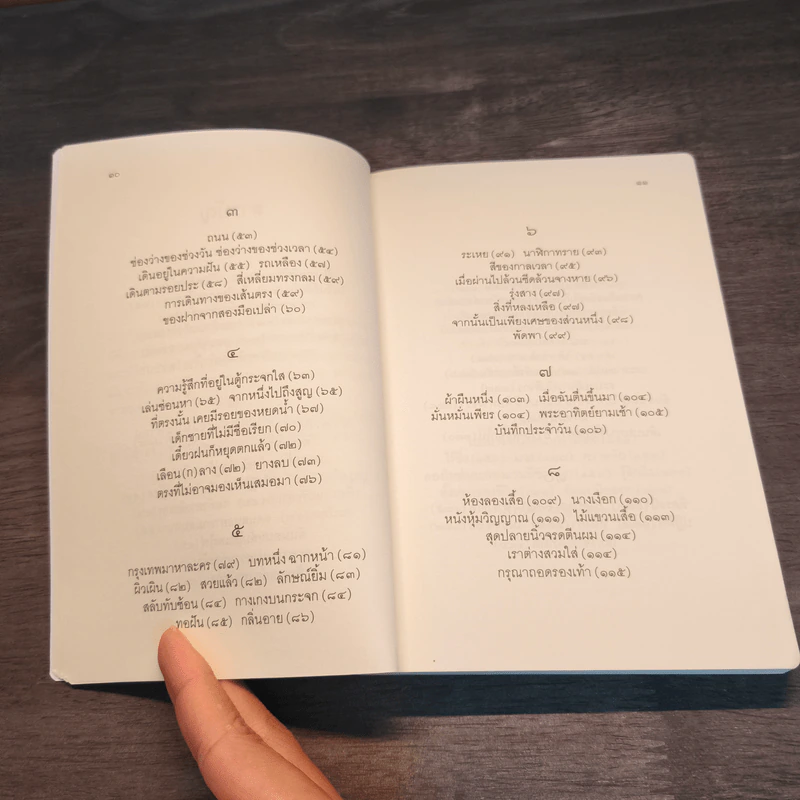 ๑๐
๓
ถนน (๕๓)
ช่องว่างของช่วงวัน ช่องว่างของช่วงเวลา (๕๔)
เดินอยู่ในความฝัน (๕๕) รถเหลือง (๕๗)
เดินตามรอยประ (๕๘) สี่เหลี่ยมทรงกลม (๕๙)
การเดินทางของเส้นตรง (๕๙)
ของฝากจากสองมือเปล่า (๖๐)
๔
ความรู้สึกที่อยู่ในตู้กระจกใส (๖๓)
เล่นซ่อนหา (๖๕) จากหนึ่งไปถึงสูญ (๖๕)
ที่ตรงนั้น เคยมีรอยของหยดน้ำ (๖๗)
เด็กชายที่ไม่มีชื่อเรียก (๗๐)
เดี๋ยวฝนก็หยุดตกแล้ว (๗๒)
เลือน(ก)ลาง (๗๒) ยางลบ (๗๓)
ตรงที่ไม่อาจมองเห็นเสมอมา (๗๖)
๕
กรุงเทพมาหาละคร (๗๙) บทหนึ่ง ฉากหน้า (๘๑)
ผิวเผิน (๘๒) สวยแล้ว (๘๒) ลักษณ์ยิ้ม (๘๓)
สลับทับซ้อน (๘๔) กางเกงบนกระจก (๘๔)
ทอฝัน (๘๕) กลิ่นอาย (๘๖)
๑๑
๖
ระเหย (๙๑) นาฬิกาทราย (๙๓)
สีของกาลเวลา (๙๕)
เมื่อผ่านไปล้วนซีดล้วนจางหาย (๙๖)
รุ่งสาง (๙๗)
สิ่งที่หลงเหลือ (๙๗)
จากนั้นเป็นเพียงเศษของส่วนหนึ่ง (๙๘)
พัดพา (๙๙)
๗
ผ้าผืนหนึ่ง (๑๐๓) เมื่อฉันตื่นขึ้นมา (๑๐๔)
มั่นหมั่นเพียร (๑๐๔) พระอาทิตย์ยามเช้า (๑๐๕)
บันทึกประจำวัน (๑๐๖)
๘
ห้องลองเสื้อ (๑๐๙) นางเงือก (๑๑๐)
หนังหุ้มวิญญาณ (๑๑๑) ไม้แขวนเสื้อ (๑๑๓)
สุดปลายนิ้วจรดตีนผม (๑๑๔)
เราต่างสวมใส่ (๑๑๔)
กรุณาถอดรองเท้า (๑๑๕)